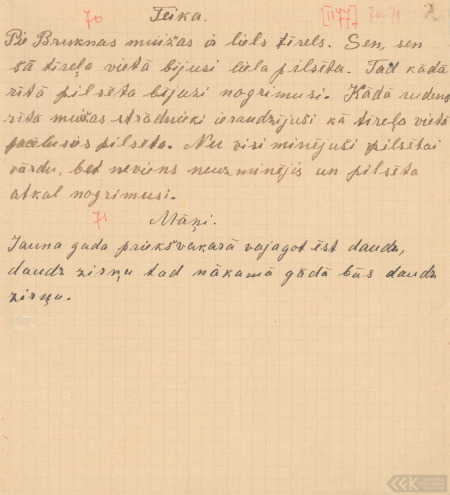 70 Teika. [1177, 70-71 2
Pie Bruknas muižas ir liels tīrels. Sen, sen
šā tīreļa vietā bijusi liela pilsēta. Tad kādā
rītā pilsēta bijusi nogrimusi. Kādā rudens
rītā muižas strādnieki ieraudzījuši kā tīreļa vietā
pacēlusēs pilsēta. Nu visi minējuši pilsētai
vārdu, bet neviens neuzminējis un pilsēta
atkal nogrimusi.
71 Māņi.
Jauna gada priekšvakarā vajagot ēst daudz,
daudz zirņu tad nākamā gādā būs daudz
zirņu.